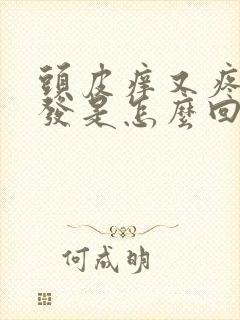 頭皮痒又疼
發是怎麼回
何成明